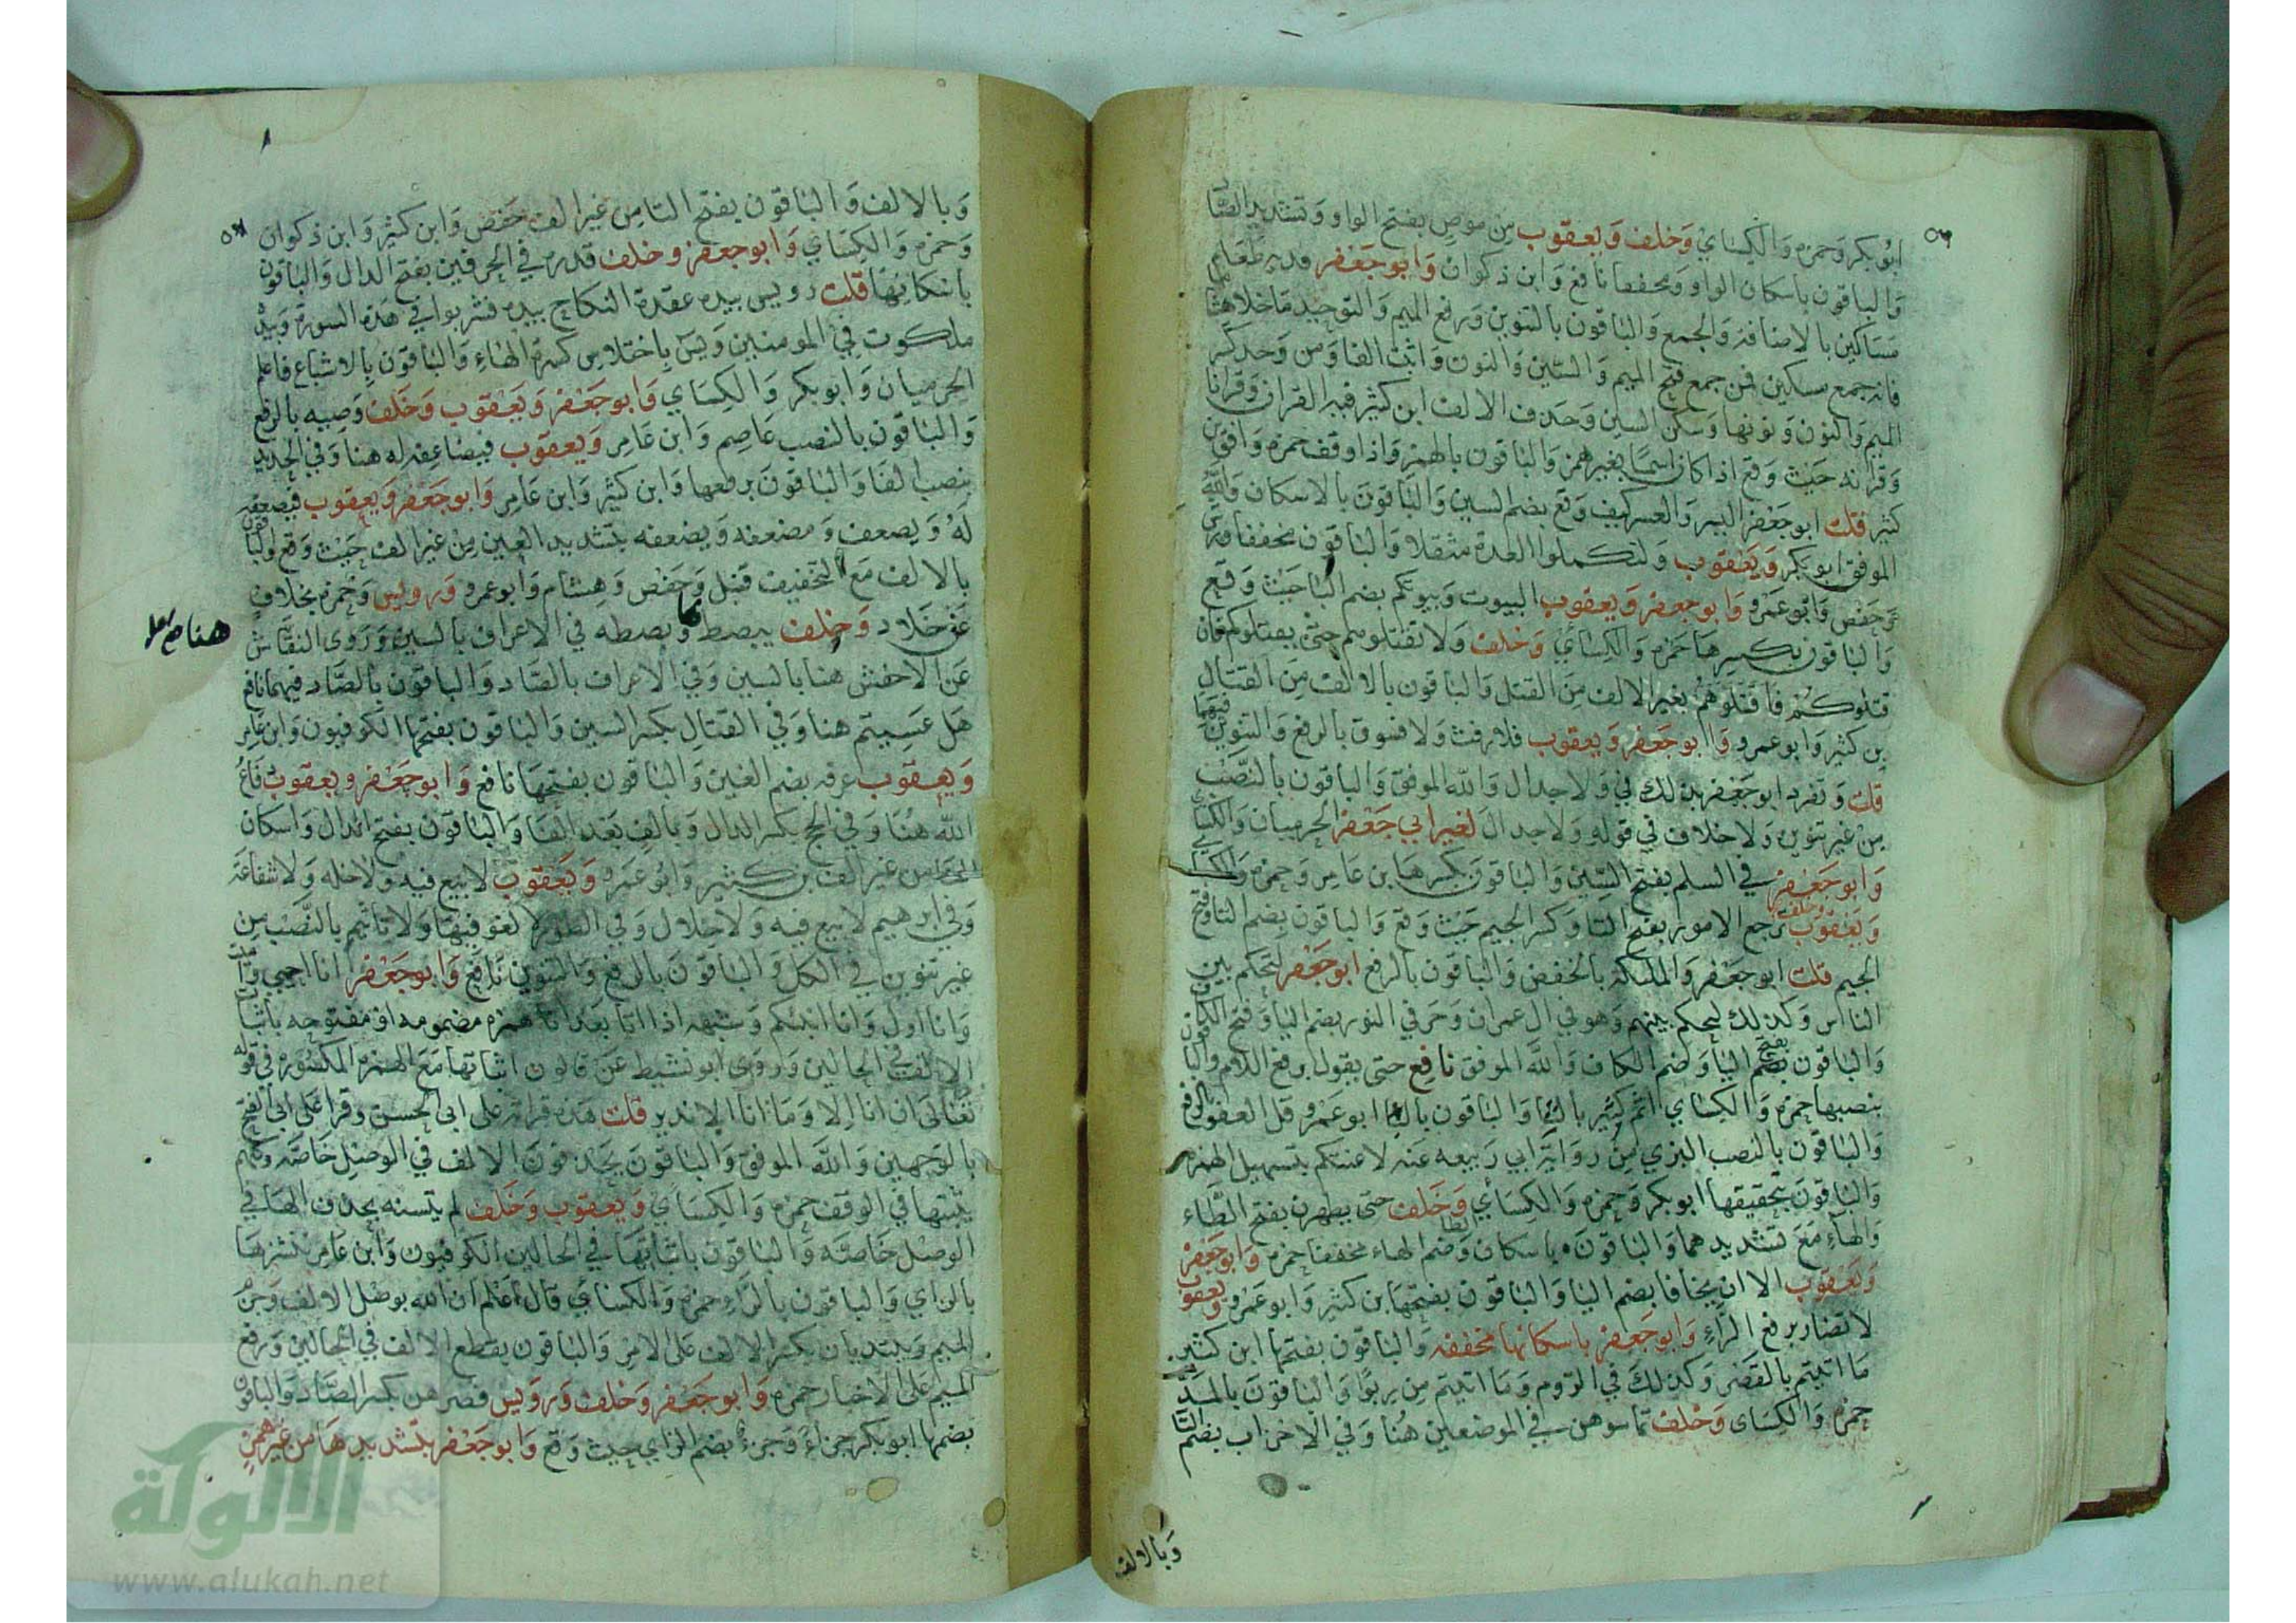 ٥٣
ابوبكر وحمزه والكسائي وخلف ويعقوب من موص بفتح الواو وتشديد الصاد
والباقون باسكان الواو ومخففا نافع وابن ذكوان وابوجعفر فديه طعام
مساكين بالاضافة والجمع والباقون بالتنوين ورفع الميم والتوحيد ماخلا هشاما
فانه جمع مسكين فمن جمع فتح الميم والسين والنون واثبت الفا ومن وحد كسر
الميم والنون ونونها وسكن السين وحذف الالف ابن كثير فيه القران وقرانا
وقرانه حيث وقع اذا كان اسما بغير همز والباقون بالهمز واذا وقف حمزه وافق ابن
كثير قلت ابوجعفر اليسر والعسر كيف وقع بضم السين والباقون بالاسكان والله
الموفق ابوبكر ويعقوب ولتكملوا العدة مثقلا والباقون مخففا ورش
وحفص وابوعمرو وابوجعفر ويعقوب البيوت وبيوتكم بضم البا حيث وقع
والباقون بكسرها حمزه والكسائي وخلف ولا تقتلوهم حتى يقتلوكم فان
قتلوكم فاقتلوهم بغير الالف من القتل والباقون بالالف من القتال
بن كثير وابوعمرو وابوجعفر ويعقوب فلا رفث ولا فسوق بالرفع والتنوين فيهما
قلت وتفرد ابوجعفر بذلك في ولا جدال والله الموفق والباقون بالنصب
من غير تنوين ولا خلاف في قوله ولا جدال لغير ابي جعفر الحرميان والكسائي
وابوجعفر في السلم بفتح السين والباقون بكسرها بن عامر وحمزه والكسائي
ويعقوب وخلف ترجع الامور بفتح التا وكسر الجيم حيث وقع والباقون بضم التا وفتح
الجيم قلت ابوجعفر والملئكة بالخفض والباقون بالرفع ابوجعفر لتحكم بين
الناس وكذلك ليحكم بينهم وهو في ال عمران وحرفي النور بضم اليا وفتح الكاف
والباقون بفتح اليا وضم الكاف والله الموفق نافع حتى يقول برفع اللام والباقون
بنصبها حمزه والكسائي اثم كثير بالثا والباقون بالبا ابوعمرو قل العفو بالرفع
والباقون بالنصب البزي من رواية ابي ربيعه عنه لاعنتكم بتسهيل الهمزه
والباقون بتحقيقها ابوبكر وحمزه والكسائي وخلف حتى يطهرن بفتح الطاء
والهاء مع تشديدهما والباقون باسكان الطا وضم الهاء مخففا حمزه وابوجعفر
ويعقوب الا ان يخافا بضم اليا والباقون بفتحها بن كثير وابوعمرو ويعقوب
لا تضار برفع الراء وابوجعفر باسكانها مخففه والباقون بفتحها ابن كثير
ما اتيتم بالقصر وكذلك في الروم وما اتيتم من ربوا والباقون بالمد
حمزه والكساى وخلف تماسوهن في الموضعين هنا وفي الاحزاب بضم التا
وبالالف
وبالالف والباقون بفتح التا من غير الف حفص وابن كثير وابن ذكوان
وحمزه والكسائي وابوجعفر وخلف قدره في الحرفين بفتح الدال والباقون
باسكانها قلت رويس بيده عقدة النكاح بيده فشربوا في هذه السورة وبيده
ملكوت في المومنين ويس باختلاس كسرة الهاء والباقون بالاشباع فاعلم
الحرميان وابوبكر والكسائي وابوجعفر ويعقوب وخلف وصيه بالرفع
والباقون بالنصب عاصم وابن عامر ويعقوب فيضاعفه له هنا وفي الحديد
بنصب الفا والباقون برفعها وابن كثير وابن عامر وابوجعفر ويعقوب فيضعفه
له ويضعف ومضعفه ويضعفه بتشديد العين من غير الف حيث وقع والباقون
بالالف مع التخفيف قنبل وحفص وهشام وابوعمرو ورويس وحمزه بخلاف
عن خلاد وخلف يبصط وبصطه في الاعراف بالسين وروى النقاش
عن الاخفش هنا بالسين وفي الاعراف بالصاد والباقون بالصاد فيهما نافع
هل عسيتم هنا وفي القتال بكسر السين والباقون بفتحها الكوفيون وابن عامر
ويعقوب غرفه بضم الغين والباقون بفتحها نافع وابوجعفر ويعقوب دفاع
الله هنا وفي الحج بكسر الدال وبالف بعد الفا والباقون بفتح الدال واسكان
الفا من غير الف بن كثير وابوعمرو ويعقوب لا بيع فيه ولا خله ولا شفاعه
وفي ابرهيم لا بيع فيه ولا خلال وفي الطور لا لغو فيها ولا تاثيم بالنصب من
غير تنوين في الكل والباقون بالرفع والتنوين نافع وابوجعفر انا احيي واميت
وانا اول وانا انبئكم وشبهه اذا اتا بعد انا همزه مضمومه او مفتوحه باثبات
الالف في الحالين وروى ابونشيط عن قالون اثباتها مع الهمزه المكسوره في قوله
تعالى ان انا الا وما انا الا نذير قلت هذه قراته على ابى الحسن وقرا على ابى الفتح
بالوجهين والله الموفق والباقون يحذفون الالف في الوصل خاصه وكلهم
يثبتها في الوقف حمزه والكسائي ويعقوب وخلف لم يتسنه بحذف الها في
الوصل خاصه والباقون باثباتها في الحالين الكوفيون وابن عامر ننشزها
بالزاي والباقون بالراء حمزه والكسائي قال اعلم ان الله بوصل الالف وجزم
الميم ويبتديان بكسر الالف على الامر والباقون بقطع الالف في الحالين ورفع
الميم على الاخبار حمزه وابوجعفر وخلف ورويس فصرهن بكسر الصاد والباقون
بضمها ابوبكر جزاء وجزء بضم الزاي حيث وقع وابوجعفر بتشديدها من غير همز
الالوكة
www.alukah.net